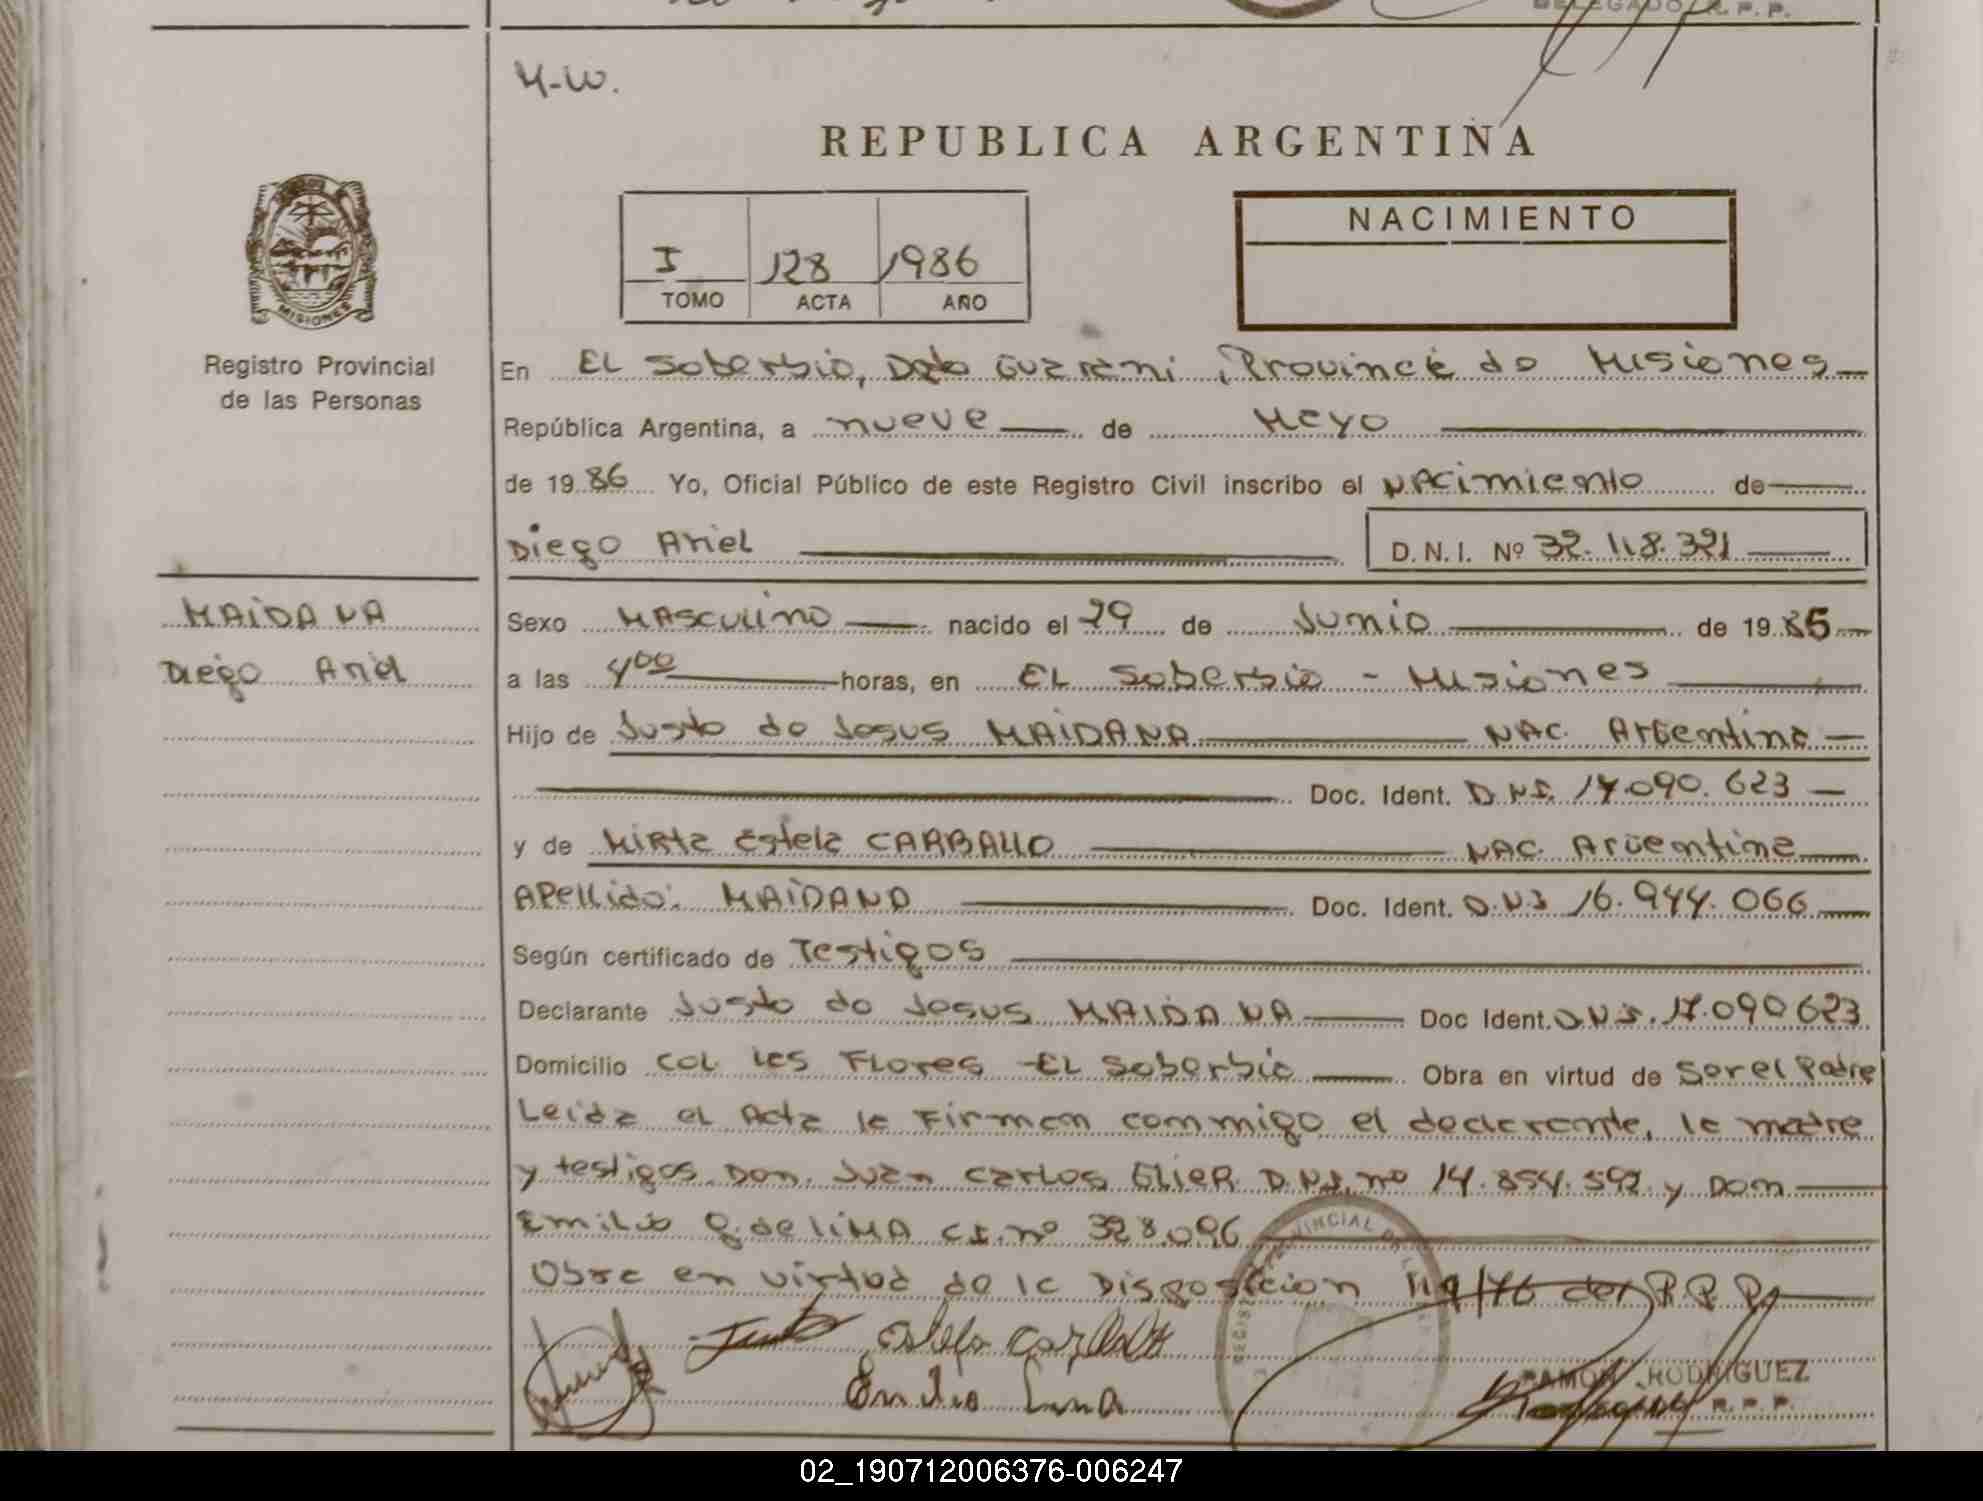 DELEGADO R.P.P.
M-W.
REPUBLICA ARGENTINA
NACIMIENTO
I 128 1986
TOMO ACTA AÑO
MISIONES
Registro Provincial
de las Personas
En EL Soberbio, Dpto Guarani, Provincia de Misiones
República Argentina, a nueve de Mayo
de 1986 Yo, Oficial Público de este Registro Civil inscribo el NAcimiento de
Diego Ariel D.N.I. Nº 32.118.321
MAiDANA
Diego Ariel
Sexo MAsculino nacido el 29 de Junio de 1985
a las 4 00 horas, en EL Soberbio - Misiones
Hijo de Justo de Jesus MAiDANA NAC. Argentina
Doc. Ident. D.N.I. 17.090.623
y de Mirta Estela CARBALLO NAC. Argentina
APellido: MAiDANA Doc. Ident. D.N.I 16.944.066
Según certificado de Testigos
Declarante Justo de Jesus MAiDANA Doc Ident. D.N.I. 17.090623
Domicilio COL. Las Flores - EL Soberbio Obra en virtud de Ser el Padre
Leida el Acta la Firman conmigo el declarante, la madre
y testigos Don. Juan Carlos D.N.I. nº 14.854.592 y Don
Emilio de LiMA C.I. nº 328.096
Obra en virtud de la Disposicion 119/76 del R.P.P.
Justo Estela Carballo
Emilio Lima
RAMON RODRIGUEZ
R.P.P.
02_190712006376-006247